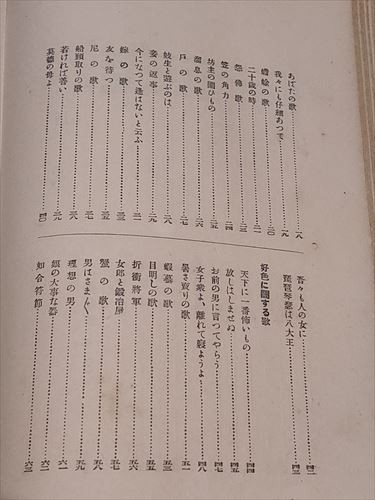 あばたの歌……一八
我々にも仔細あつて……一九
蟾蜍の歌……二〇
二十歳の時……二一
怨佛歌……二三
笠の角力……二四
坊主の囲ひもの……二五
溜息の歌……二六
戸の歌……二七
妓生と遊ぶのは……二八
妾の返事……二九
今になつて逢はないと云ふ……三一
嫁の歌……三二
友を待つ……三五
尼の歌……三七
船頭取りの歌……三八
若ければ善い……三九
莫德の母よ……四〇
吾々も人の女に……四二
琵琶琴瑟は八大王……四三
好色に關する歌
天下に一番怖いもの……四四
放しはしませぬ……四五
お前の男に言つてやらう……四七
女子衆よ、離れて寢ようよ……四八
暑さ賣りの歌……五一
蝦蟇の歌……五三
目明しの歌……五五
折衝將軍……五六
女郎と鍛冶屋……五七
蟹の歌……五八
男はさま〴〵……五九
理想の男……六一
娘の大事な器……六二
知合符節……六三